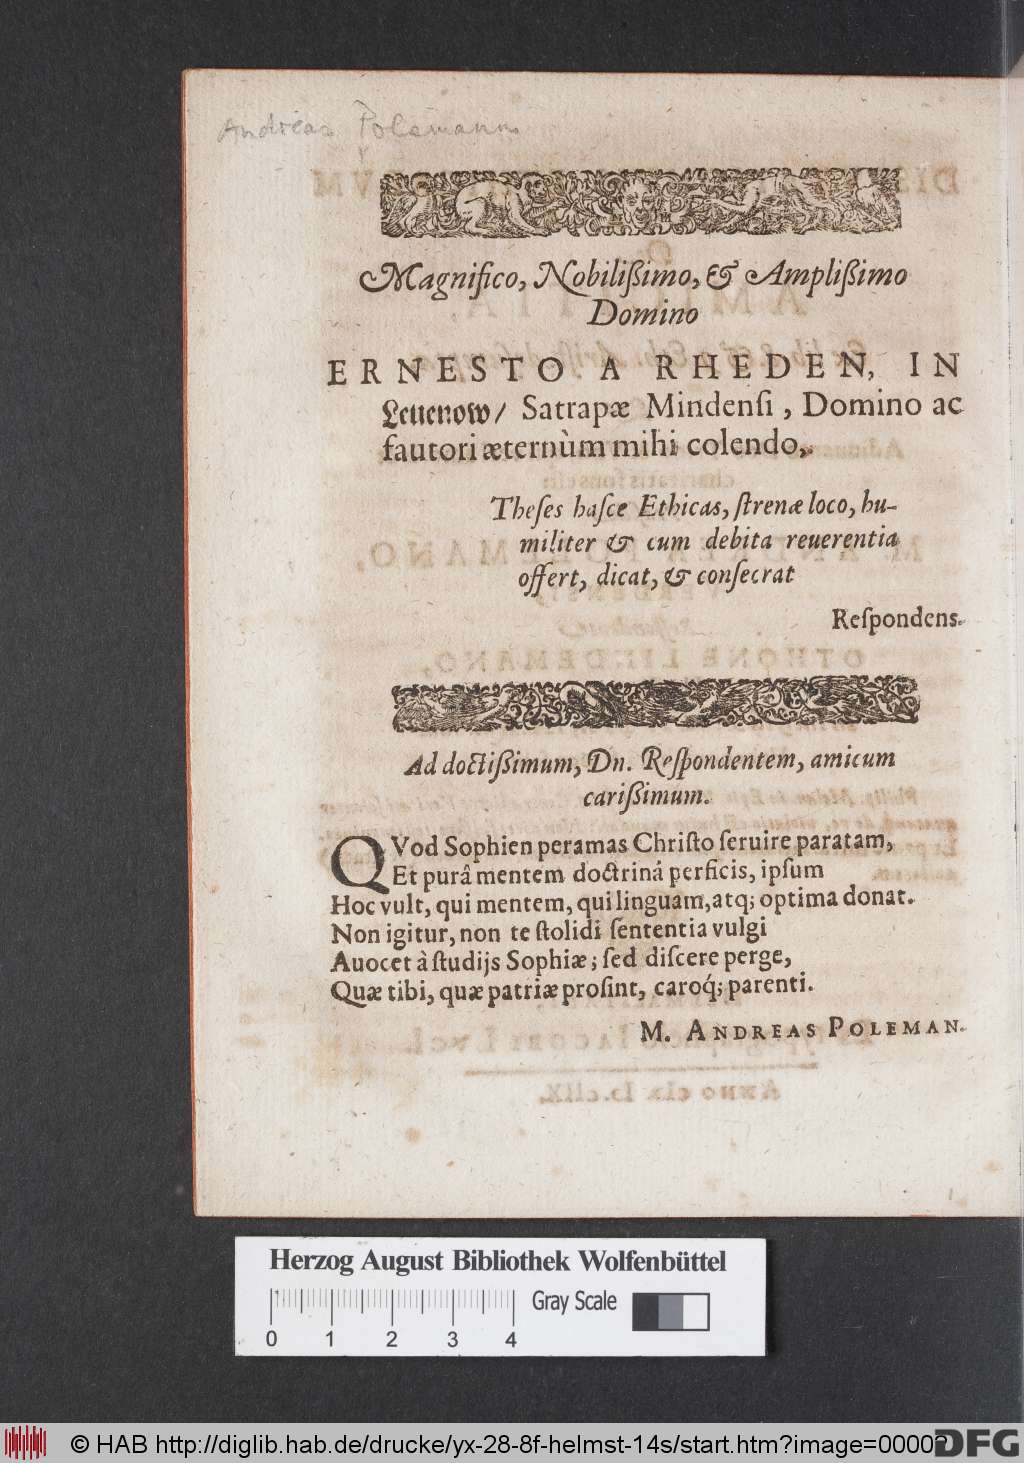 Andreas Polemann
Magnifico, Nobilißimo, & Amplißimo
Domino
ERNESTO A RHEDEN, IN
Leuenow/ Satrapæ Mindenſi, Domino ac
fautori æternùm mihi colendo,
Theſes haſce Ethicas, ſtrenæ loco, hu-
militer & cum debita reuerentia
offert, dicat, & conſecrat
Reſpondens.
Ad doctißimum, Dn. Reſpondentem, amicum
carißimum.
QVod Sophien peramas Chriſto ſeruire paratam,
Et purâ mentem doctriná perficis, ipſum
Hoc vult, qui mentem, qui linguam, atq; optima donat.
Non igitur, non te ſtolidi ſententia vulgi
Auocet à ſtudijs Sophiæ; ſed diſcere perge,
Quæ tibi, quæ patriæ proſint, caroq́; parenti.
M. ANDREAS POLEMAN.
Herzog August Bibliothek Wolfenbüttel
Gray Scale
0 1 2 3 4
© HAB http://diglib.hab.de/drucke/yx-28-8f-helmst-14s/start.htm?image=00002
DFG